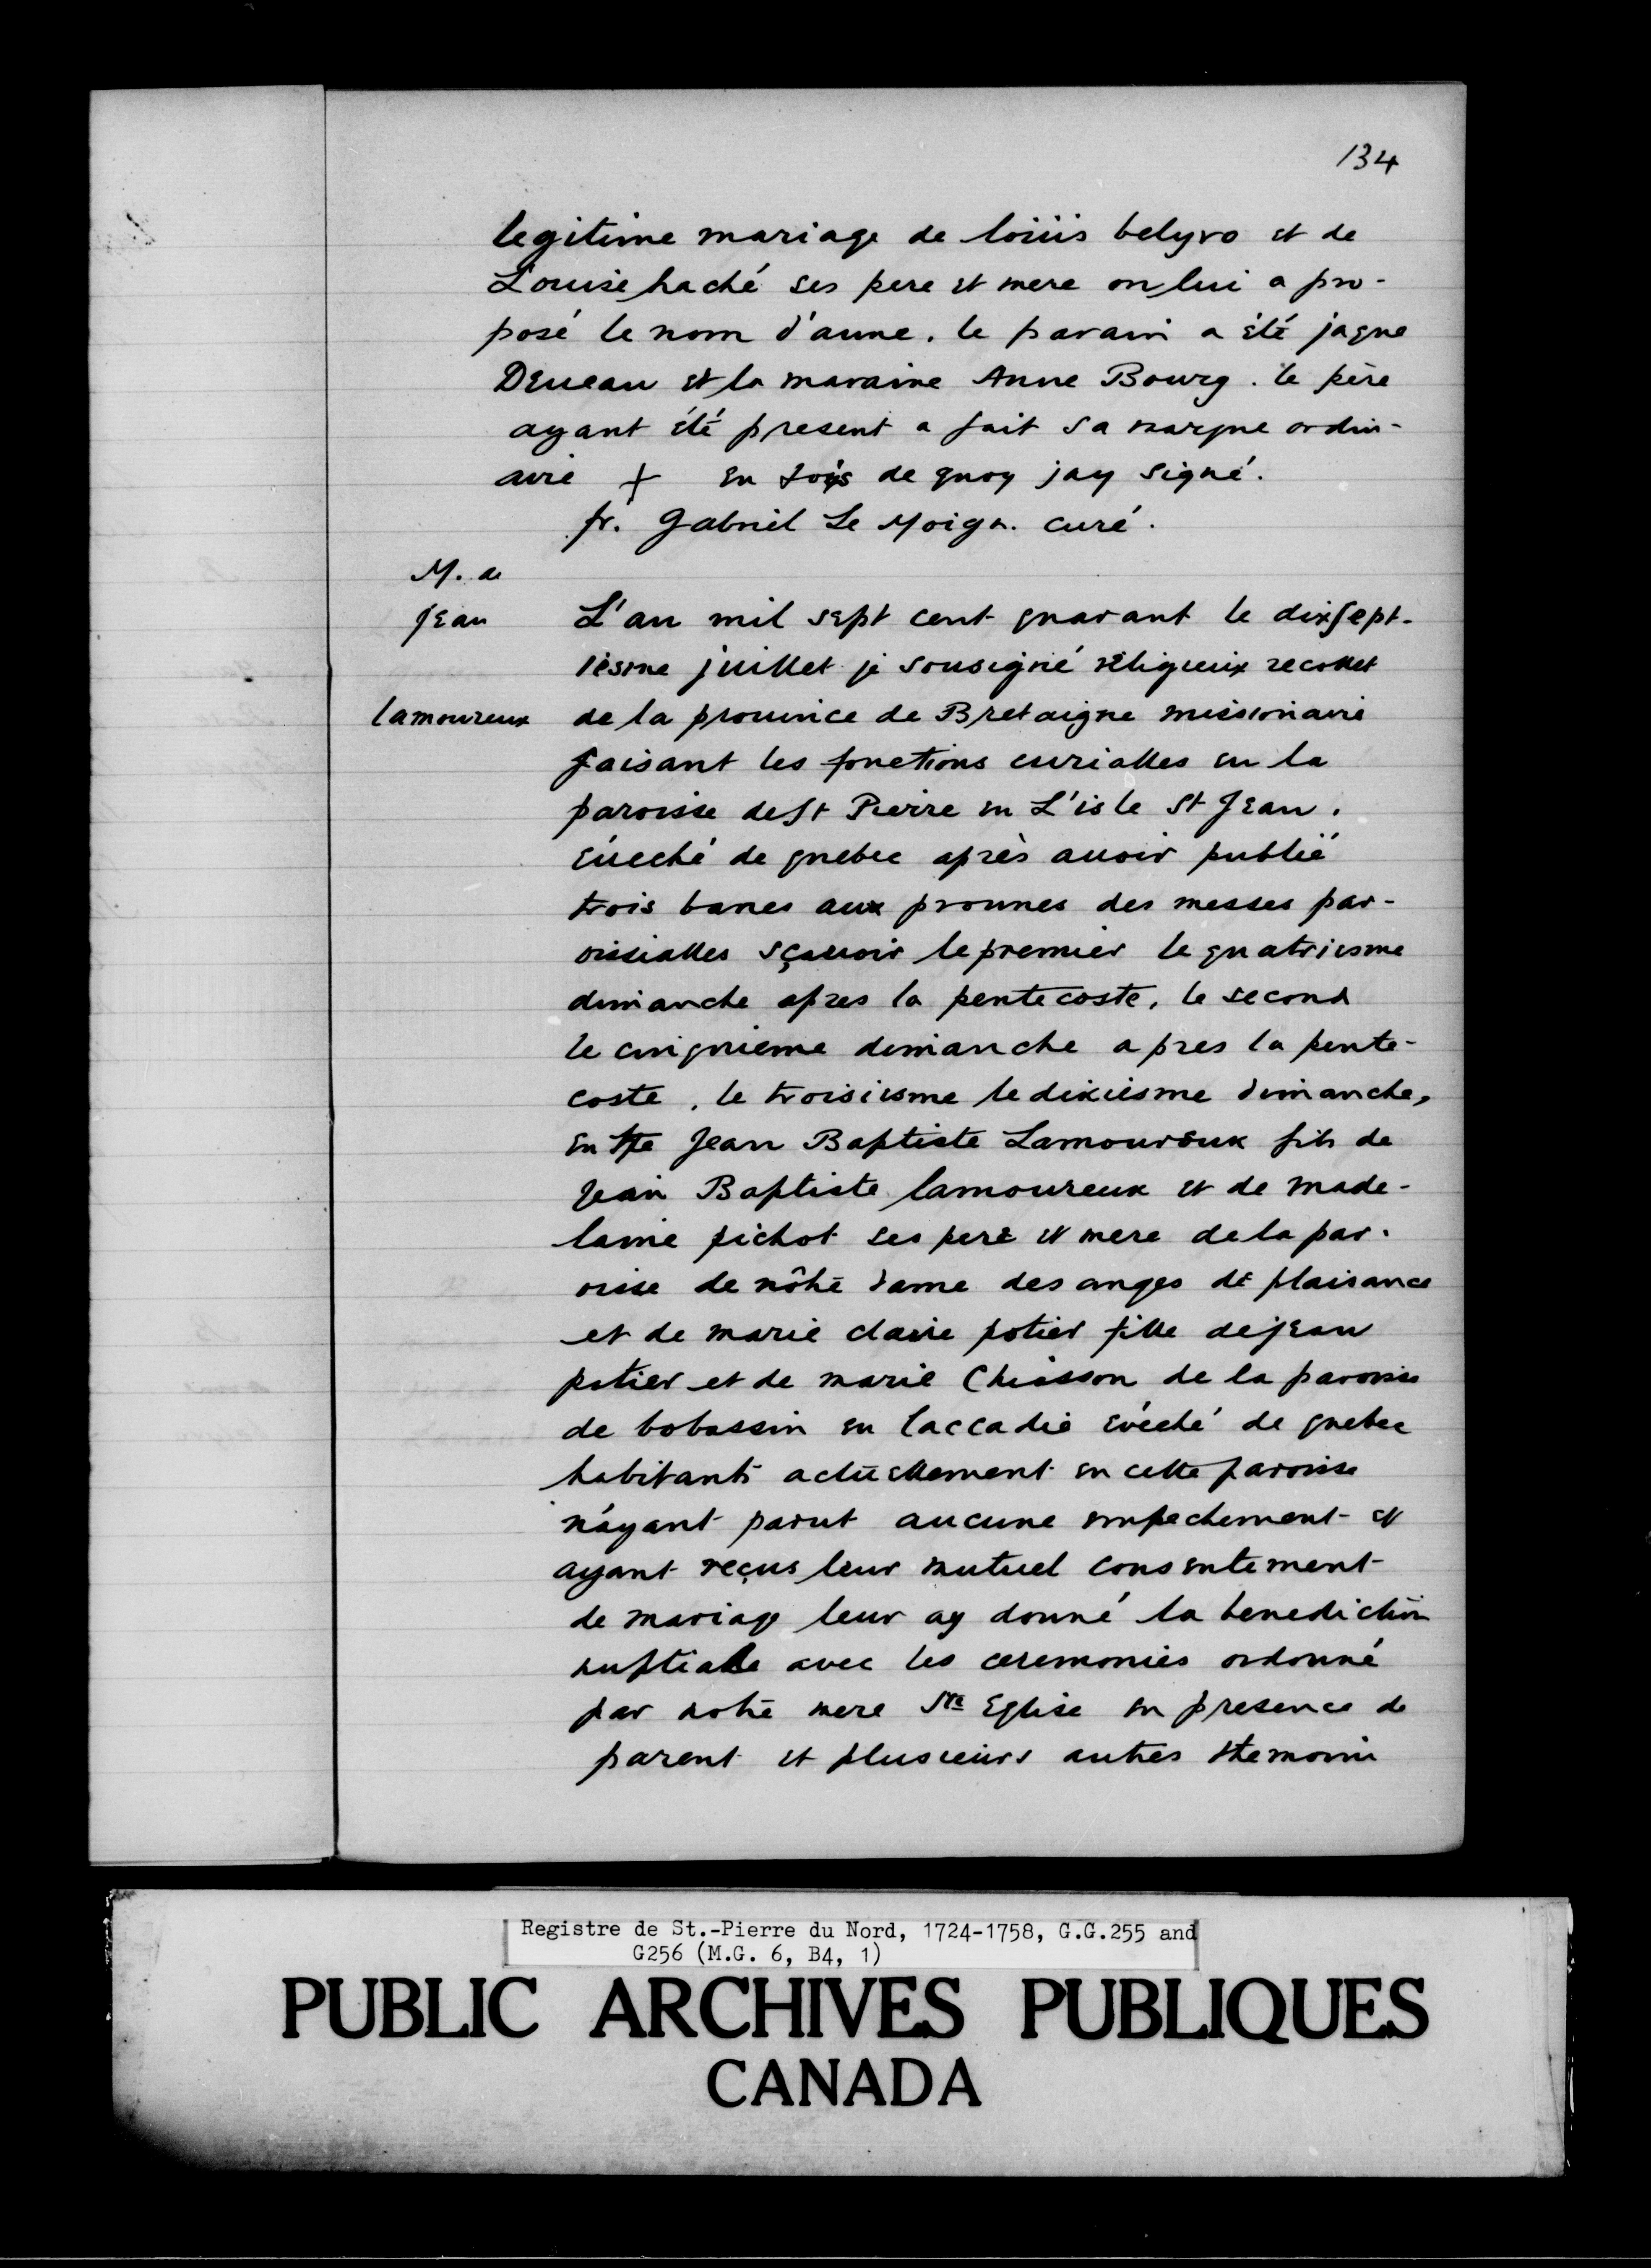 134
legitime mariage de loüis belyvo et de
Louise haché ses pere et mere on lui a pro-
posé le nom d'anne. le parain a été jaque
Deueau et la maraine Anne Bourg. le père
ayant été present a fait sa marque ordin-
aire + en foys de quoy jay signé.
fr. Gabriel Le Moign. curé.
M. de
Jean
lamoureux
L'an mil sept cent quarant le dixsept-
iesme juillet je sousigné religieux recollet
de la prouince de Bretaigne missionaire
faisant les fonctions curialles en la
paroisse de St Pierre en L'isle St Jean.
éueché de quebec après auoir publié
trois banes aux pronnes des messes par-
oissialles sçauoir le premier le quatriesme
dimanche apres la pentecoste, le second
le cinquieme dimanche apres la pente-
coste, le troisiesme le dixiesme dimanche,
entre Jean Baptiste Lamoureux fils de
Jean Baptiste lamoureux et de made-
laine pichot ses pere et mere de la par-
oisse de nôtre dame des anges de plaisance
et de marie claire potier fille de jean
potier et de marie Chiasson de la paroisse
de bobassin en laccadie évéché de quebec
habitants actüellement en cette paroisse
n'ayant parut aucune empechement et
ayant reçus leur mutuel consentement
de mariage leur ay donné la benediction
nuptialle avec les ceremonies ordonné
par notre mere Ste Eglise en presence de
parent et plusieurs autres temoins
Registre de St.-Pierre du Nord, 1724-1758, G.G.255 and
G256 (M.G. 6, B4, 1)
PUBLIC ARCHIVES PUBLIQUES
CANADA